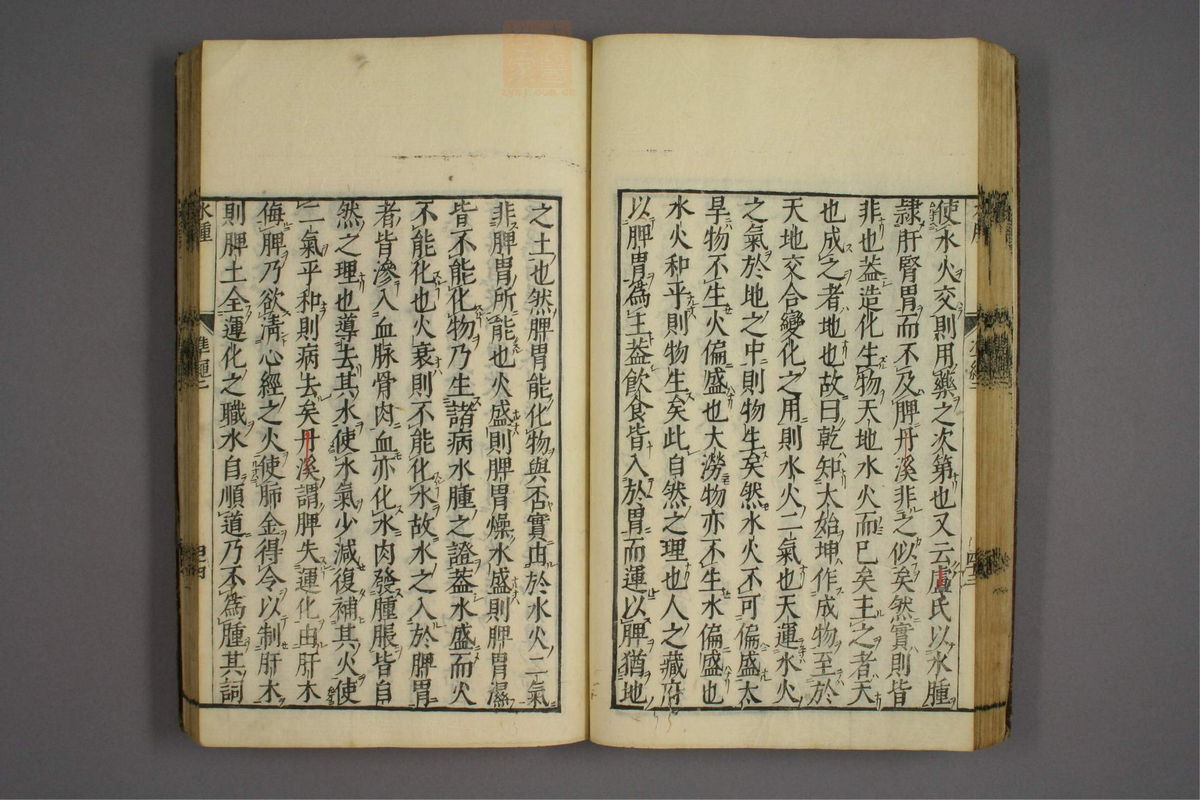 使水火交則用藥之次第也又云盧氏以水腫
隷肝腎胃而不及脾丹溪非之似矣然實則皆
非也葢造化生物天地水火而已矣主之者天
也成之者地也故曰乾知太始坤作成物至於
天地交合變化之用則水火二氣也天運水火
之氣於地之中則物生矣然水火不可偏盛太
旱物不生火偏盛也大澇物亦不生水偏盛也
水火和平則物生矣此自然之理也人之藏府
以脾胃為主葢飲食皆入於胃而運以脾猶地
之土也然脾胃能化物與否實由於水火二氣
非脾胃所能也火盛則脾胃燥水盛則脾胃濕
皆不能化物乃生諸病水腫之證葢水盛而火
不能化也火衰則不能化水故水之入於脾胃
者皆滲入血脉骨肉血亦化水肉發腫脹皆自
然之理也導去其水使水氣少減復補其火使
二氣平和則病去矣丹溪謂脾失運化由肝木
侮脾乃欲清心經之火使肺金得令以制肝木
則脾土全運化之職水自順道乃不為腫其詞
水腫